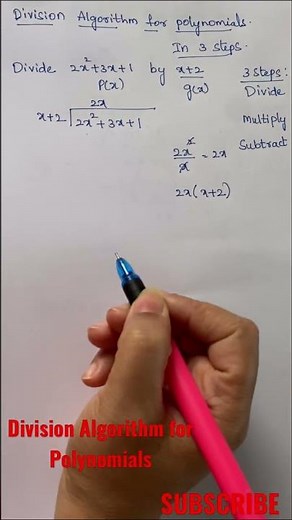 Division Algorithm for polynomials.
In 3 steps.
Divide 2x²+3x+1 by x+2
P(x) g(x)
3 steps:
Divide
Multiply
Subtract
2x
x+2 2x²+3x+1
2x²/x = 2x
2x(x+2)
Division Algorithm for
Polynomials
SUBSCRIBE